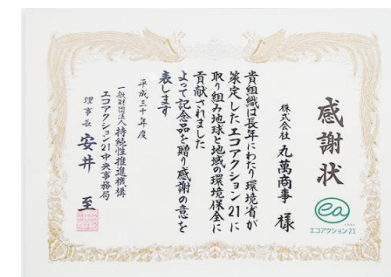 感謝状
ea
エコアクション21
株式会社 丸萬商事 様
貴組織は長年にわたり環境省が
策定したエコアクション21に
取り組み地球と地域の環境保全に
貢献されました
よって記念品を贈り感謝の意を
表します
平成三十年度
一般財団法人持続性推進機構
エコアクション21中央事務局
理事長 安井 至